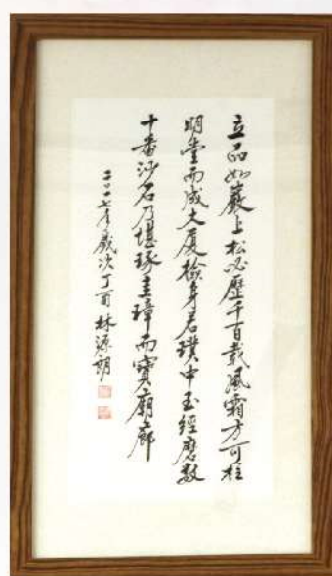 立品如巖上松必歷千百載風霜方可柱
明堂而成大廈檢身若璞中玉經磨數
十番沙石乃堪琢圭璋而寶廟廊
二〇一七年歲次丁酉 林源朗